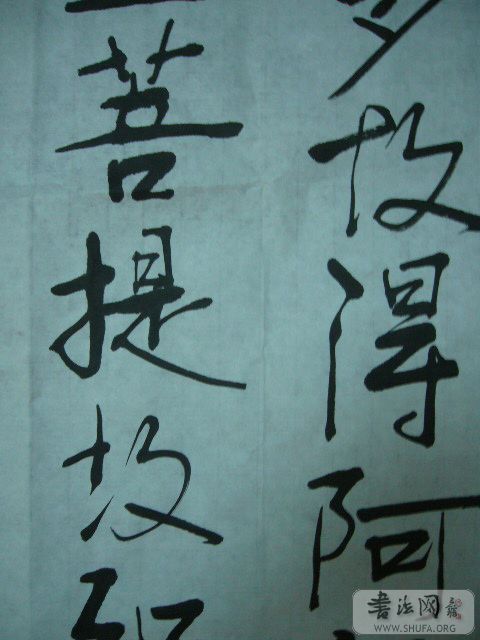 多故得阿
三菩提故知
書法网
WWW.SHUFA.ORG